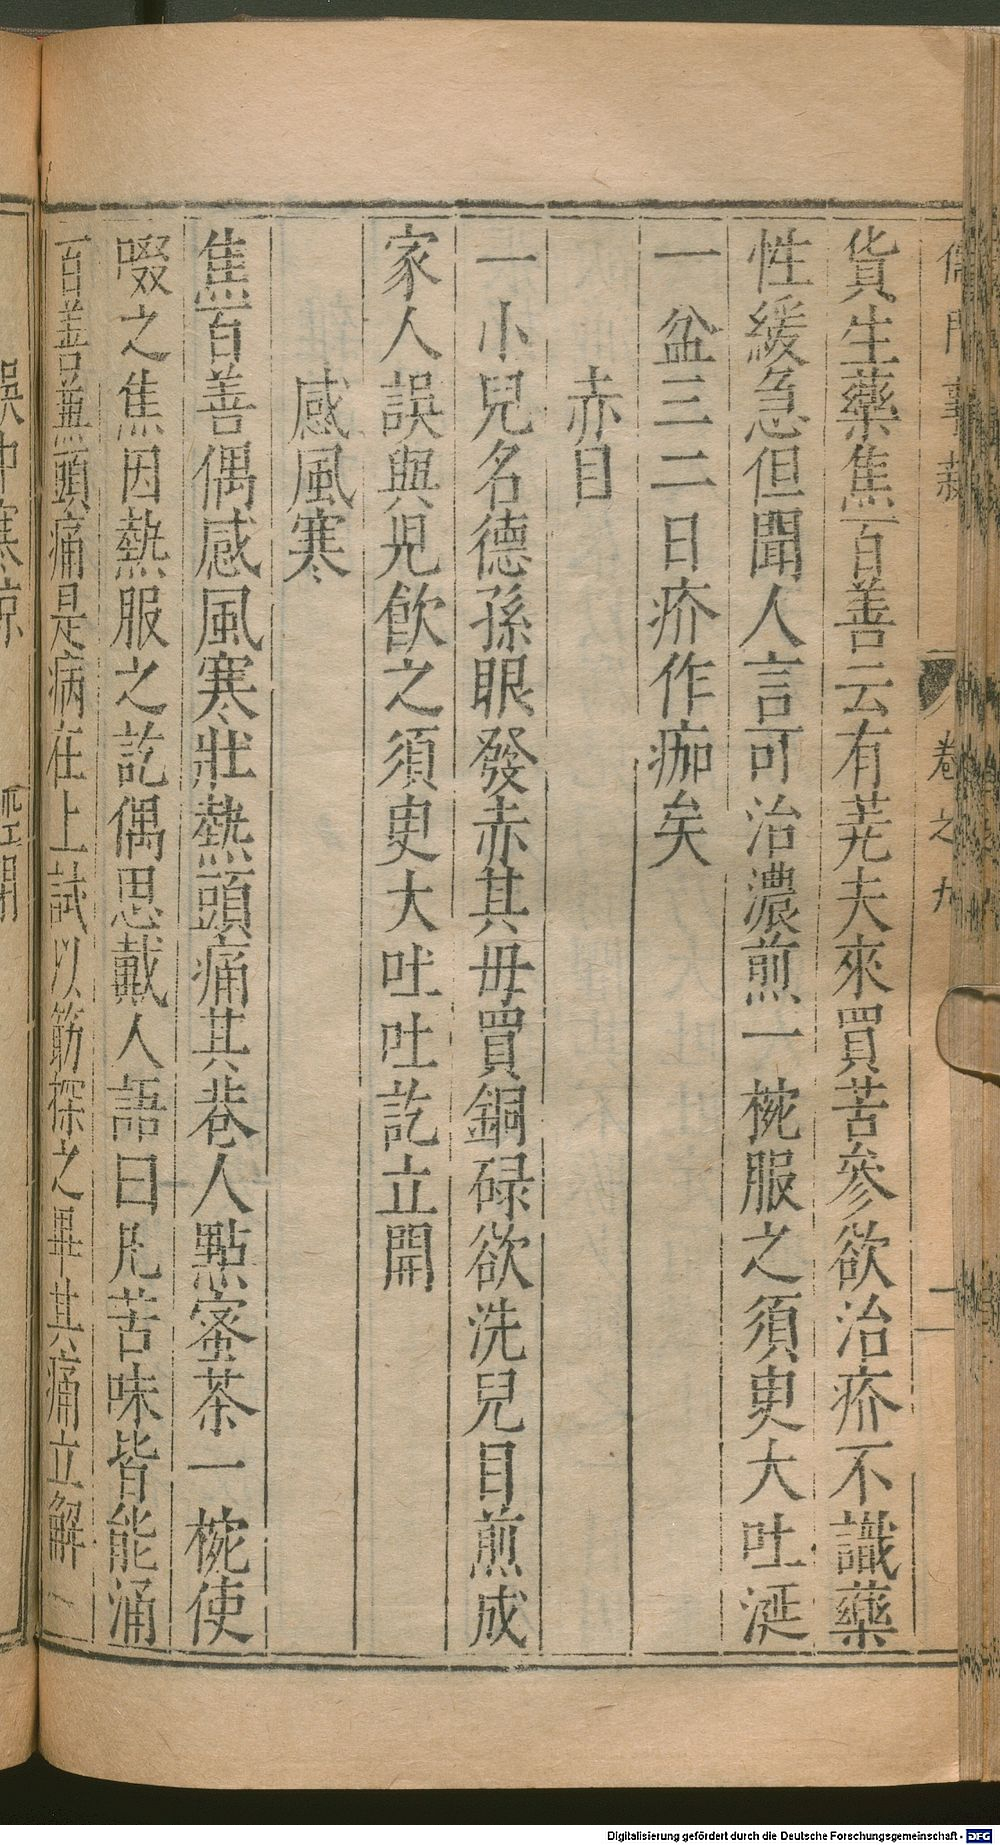 儒門事親　卷之九　二
貨生藥焦百善云有蕘夫來買苦參欲治疥不識藥
性緩急但聞人言可治濃煎一椀服之須臾大吐涎
一盆三二日疥作痂矣
赤目
一小兒名德孫眼發赤其母買銅碌欲洗兒目煎成
家人誤與兒飲之須臾大吐吐訖立開
感風寒
焦百善偶感風寒壯熱頭痛其巷人點蜜茶一椀使
啜之焦因熱服之訖偶思戴人語曰凡苦味皆能涌
百善兼頭痛是病在上試以筯探之畢其痛立解
誤中寒涼
Digitalisierung gefördert durch die Deutsche Forschungsgemeinschaft - DFG